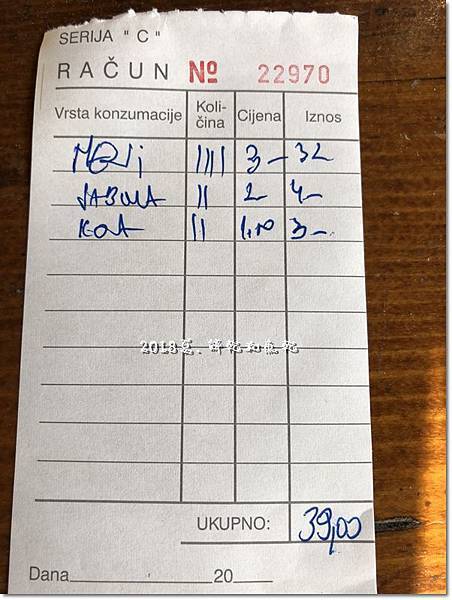 SERIJA " C "
RAČUN № 22970
Vrsta konzumacije Koli-čina Cijena Iznos
IIII 3- 32
JABUKA II 2- 4-
KOLA II 1,50 3-
2018夏.
UKUPNO: 39,00
Dana 20